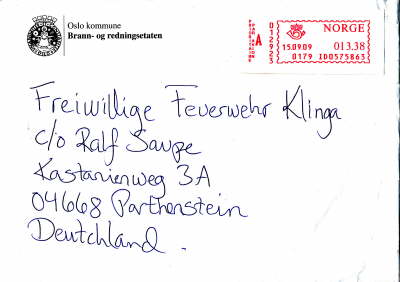 Oslo kommune
Brann- og redningsetaten
A
NORGE
15.09.09
013.38
0179 ID0575863
Freiwillige Feuerwehr Klinga
c/o Ralf Saupe
Kastanienweg 3A
04668 Parthenstein
Deutchland.